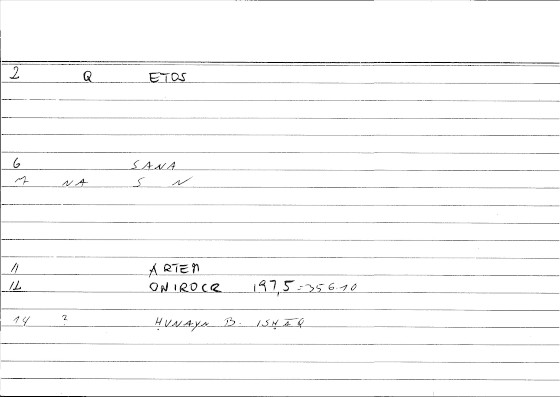 2 Q ETOS
6 SANA
M NA S N
11 ARTEM
12 ONIROCR 197,5 = 356.10
14 ? ḤUNAYN B. ISḤĀQ